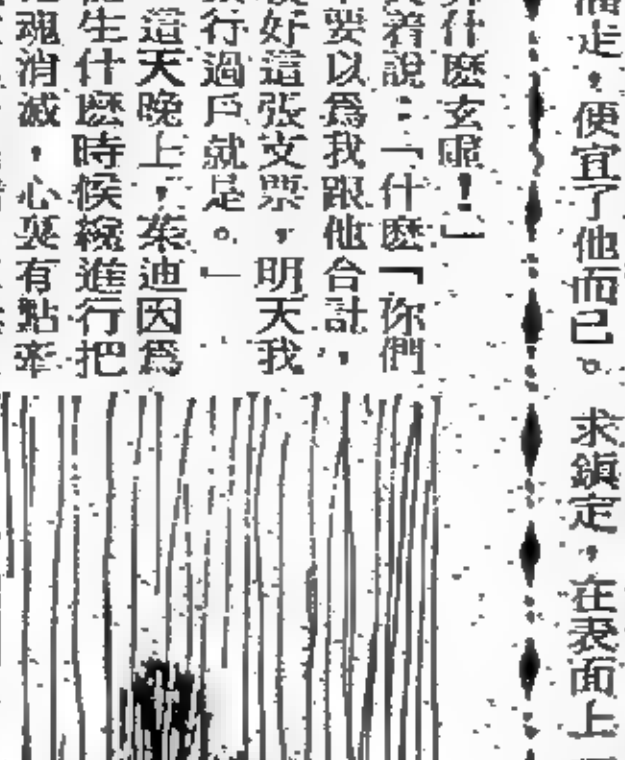 走，便宜了他而已。求鎭定，在表面上
什麽玄虛！」
着說：「什麽「你們
要以爲我跟他合計，
好這張支票，明天我
行過戶就是。」
這天晚上，茱迪因爲
生什麽時候纔進行把
魂消滅，心裏有點牽